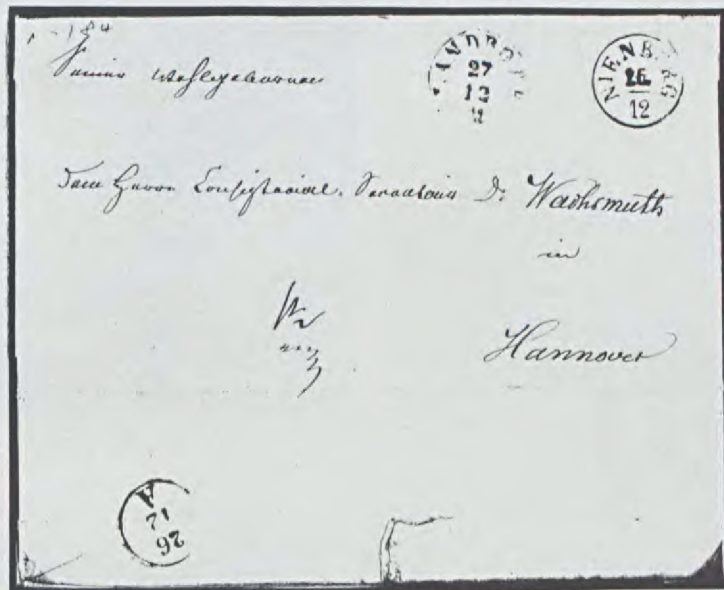 Seiner Wohlgeboren
27
12
NIENBURG
26
12
Dem Herrn Consistorial. Secretair Dr Wachsmuth
in
Hannover
26
12
A